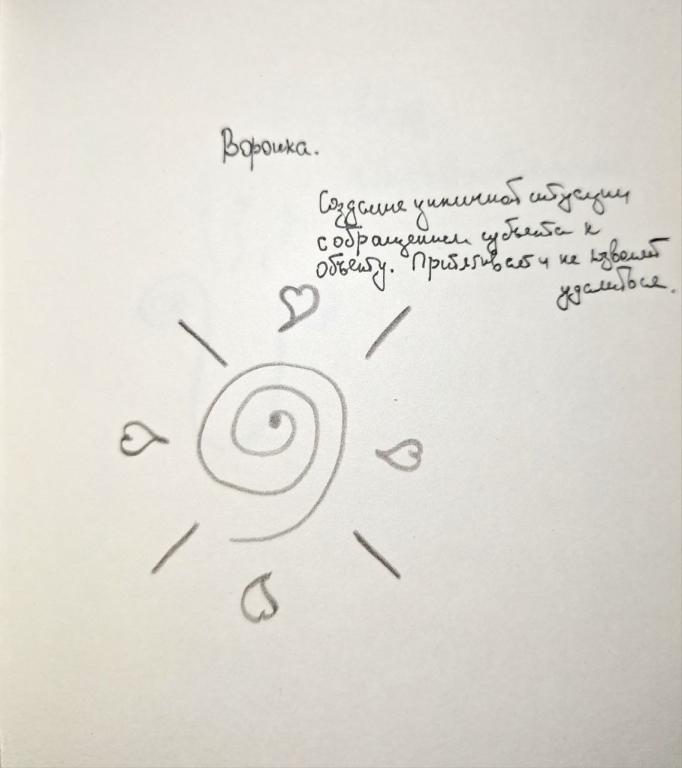 Воронка.
Создание уникальной ситуации
с обращением субъекта к
объекту. Притягивает и не позволяет
удалиться.